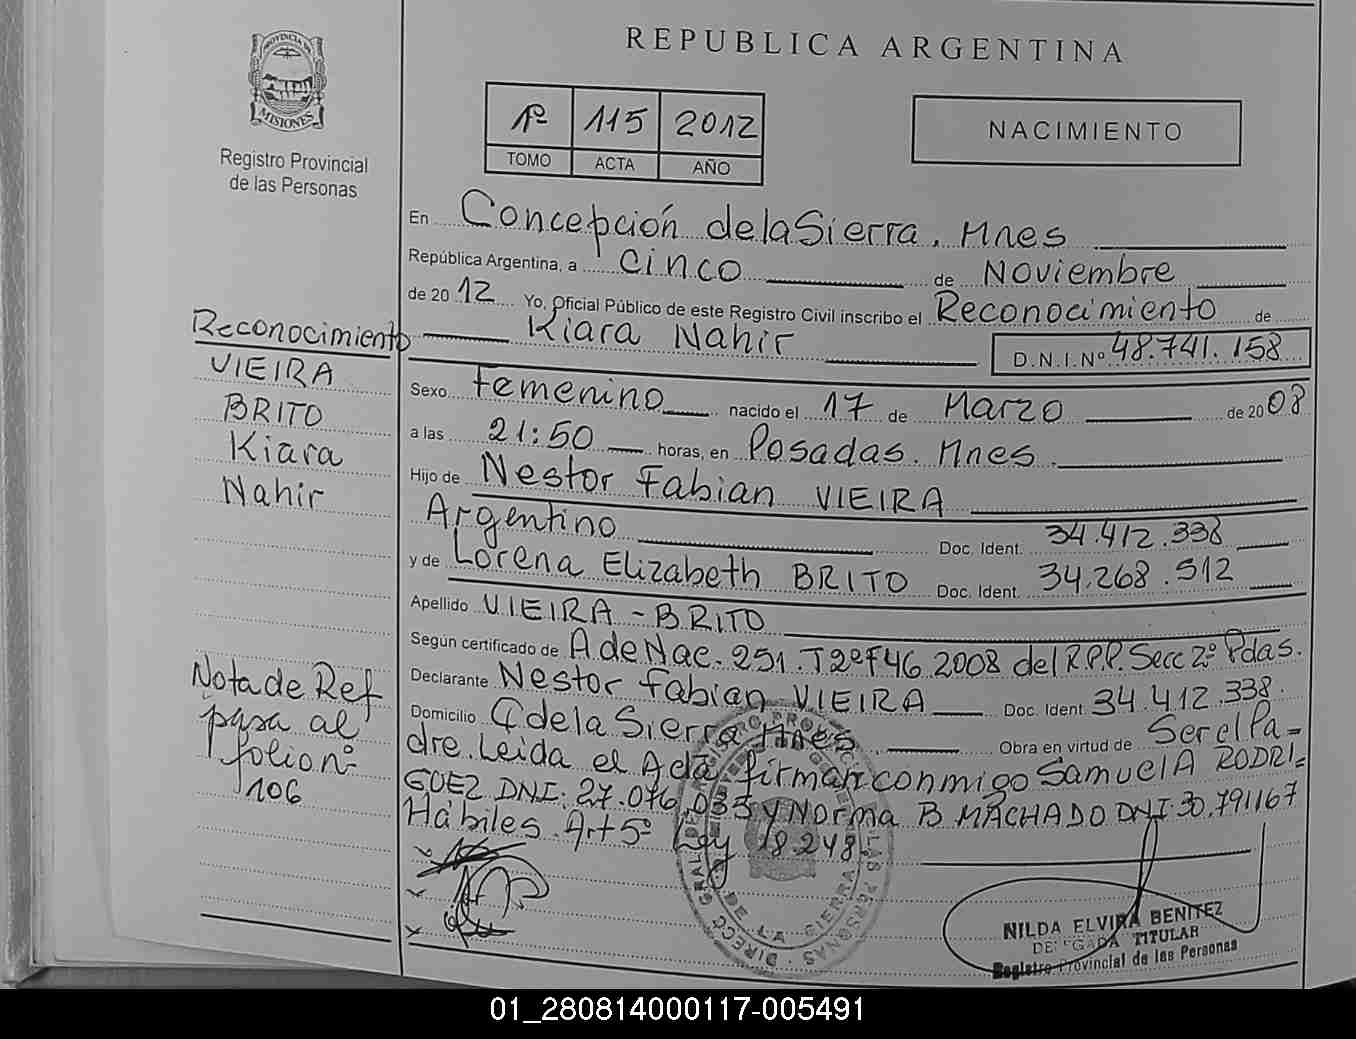 PROVINCIA DE
MISIONES
Registro Provincial
de las Personas
REPUBLICA ARGENTINA
1º 115 2012
TOMO ACTA AÑO
NACIMIENTO
En Concepción de la Sierra. Mnes
República Argentina, a cinco de Noviembre
de 2012 Yo, Oficial Público de este Registro Civil inscribo el Reconocimiento de
Kiara Nahir D.N.I.Nº 48.741.158
Sexo femenino nacido el 17 de Marzo de 2008
a las 21:50 horas, en Posadas. Mnes.
Hijo de Nestor Fabian VIEIRA
Argentino Doc. Ident. 34.412.338
y de Lorena Elizabeth BRITO Doc. Ident. 34.268.512
Apellido VIEIRA-BRITO
Según certificado de A de Nac. 251. T2º F46. 2008 del R.P.P. Secc 2º Pdas.
Declarante Nestor Fabian VIEIRA Doc. Ident. 34.412.338.
Domicilio C de la Sierra Mnes Obra en virtud de Ser el Pa-
dre. Leida el Acta, firman conmigo Samuel A RODRI=
GUEZ DNI: 27.076.033 y Norma B MACHADO DNI 30.791167
Hábiles. Art 5º Ley 18.248.
Reconocimiento
VIEIRA
BRITO
Kiara
Nahir
Nota de Ref
pasa al
folio nº
106
DIRECC GRAL DEL REGISTRO PROVINCIAL DE LAS PERSONAS
DE LA SIERRA
NILDA ELVIRA BENITEZ
DELEGADA TITULAR
Registro Provincial de las Personas
01_280814000117-005491